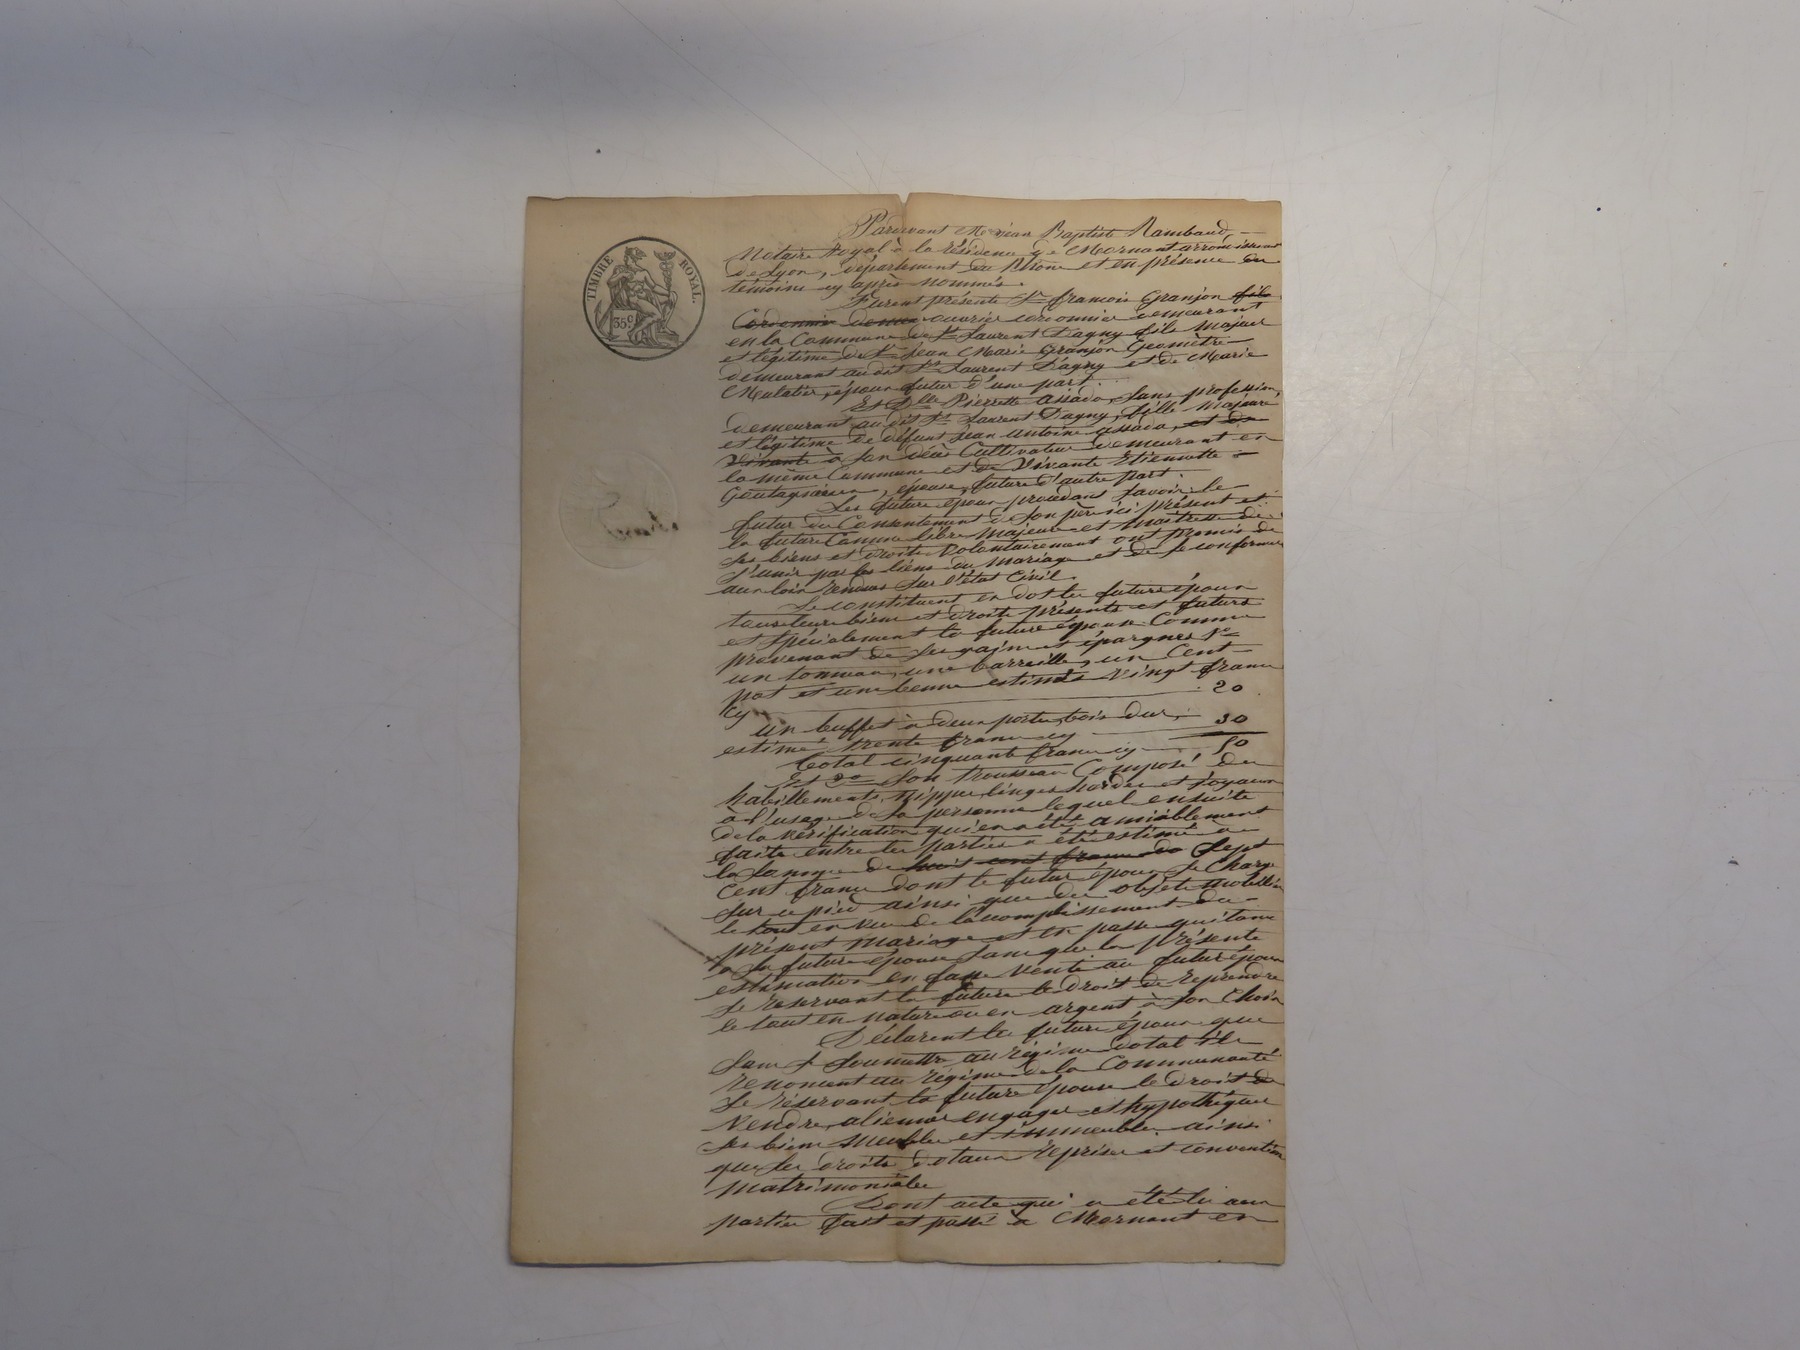 TIMBRE ROYAL.
35c
Pardevant Me Jean Baptiste Rambaud,
Notaire Royal à la résidence de Mornant arrondissement
de Lyon, département du Rhône et en présence des
témoins cy après nommés.
Furent présents Sr françois Granjon fils
Cordonnier ouvrier cordonnier demeurant
en la Commune de St Laurent D'agny fils majeur
et légitime de Sr Jean Marie Granjon Géomètre
demeurant au dit St Laurent D'agny et de Marie
Mulatier, époux futur d'une part.
Et Dlle Pierrette assada, sans profession,
demeurant au dit St Laurent D'agny, fille majeure
et légitime de défunt Jean antoine assada, et de
Vivante à son décès Cultivateur demeurant en
la même Commune et de Vivante Etiennette
épouse future d'autre part.
Les futurs époux procédans savoir le
futur du Consentement de son père ici présent et
la future Comme libre majeure et maitresse de
ses biens et droits Volontairement ont promis de
s'unir par les liens du mariage et de se conformer
aux loix rendues sur l'état Civil.
Se constituent en dot les futurs époux
tous leurs biens et droits présents et futurs
et spécialement la future épouse Comme
provenant de ses gains et épargnes 1o
un tonneau, une barreille, un Cent
pot et une benne estimés Vingt francs
cy 20
un buffet à deux portes, bois dur,
estimé trente francs cy 30
Total cinquante francs cy 50
Et 2o son trousseau Composé des
habillements, nippes, linges hardes et joyaux
à l'usage de sa personne lequel ensuite
de la vérification qu'en a été amiablement
faite entre les parties a été estimé à
la somme de huit cent francs Sept
Cent francs dont le futur époux se Charge
sur ce pied ainsi que des objets mobiliers
le tout en vue de l'accomplissement du
présent mariage et en passe quittance
à sa future épouse sans que la présente
estimation en fasse Vente au futur époux
se réservant la future le droit de reprendre
le tout en nature ou en argent à son choix
Déclarent les futurs époux que
sans se soumettre au régime dotal ils
renoncent au régime de la Communauté
se réservant la future épouse le droit de
Vendre, aliéner engager et hypothéquer
ses biens meubles et immeubles, ainsi
que ses droits dotaux reprises et conventions
matrimoniales
Dont acte qui a été lu aux
parties fait et passé à Mornant en